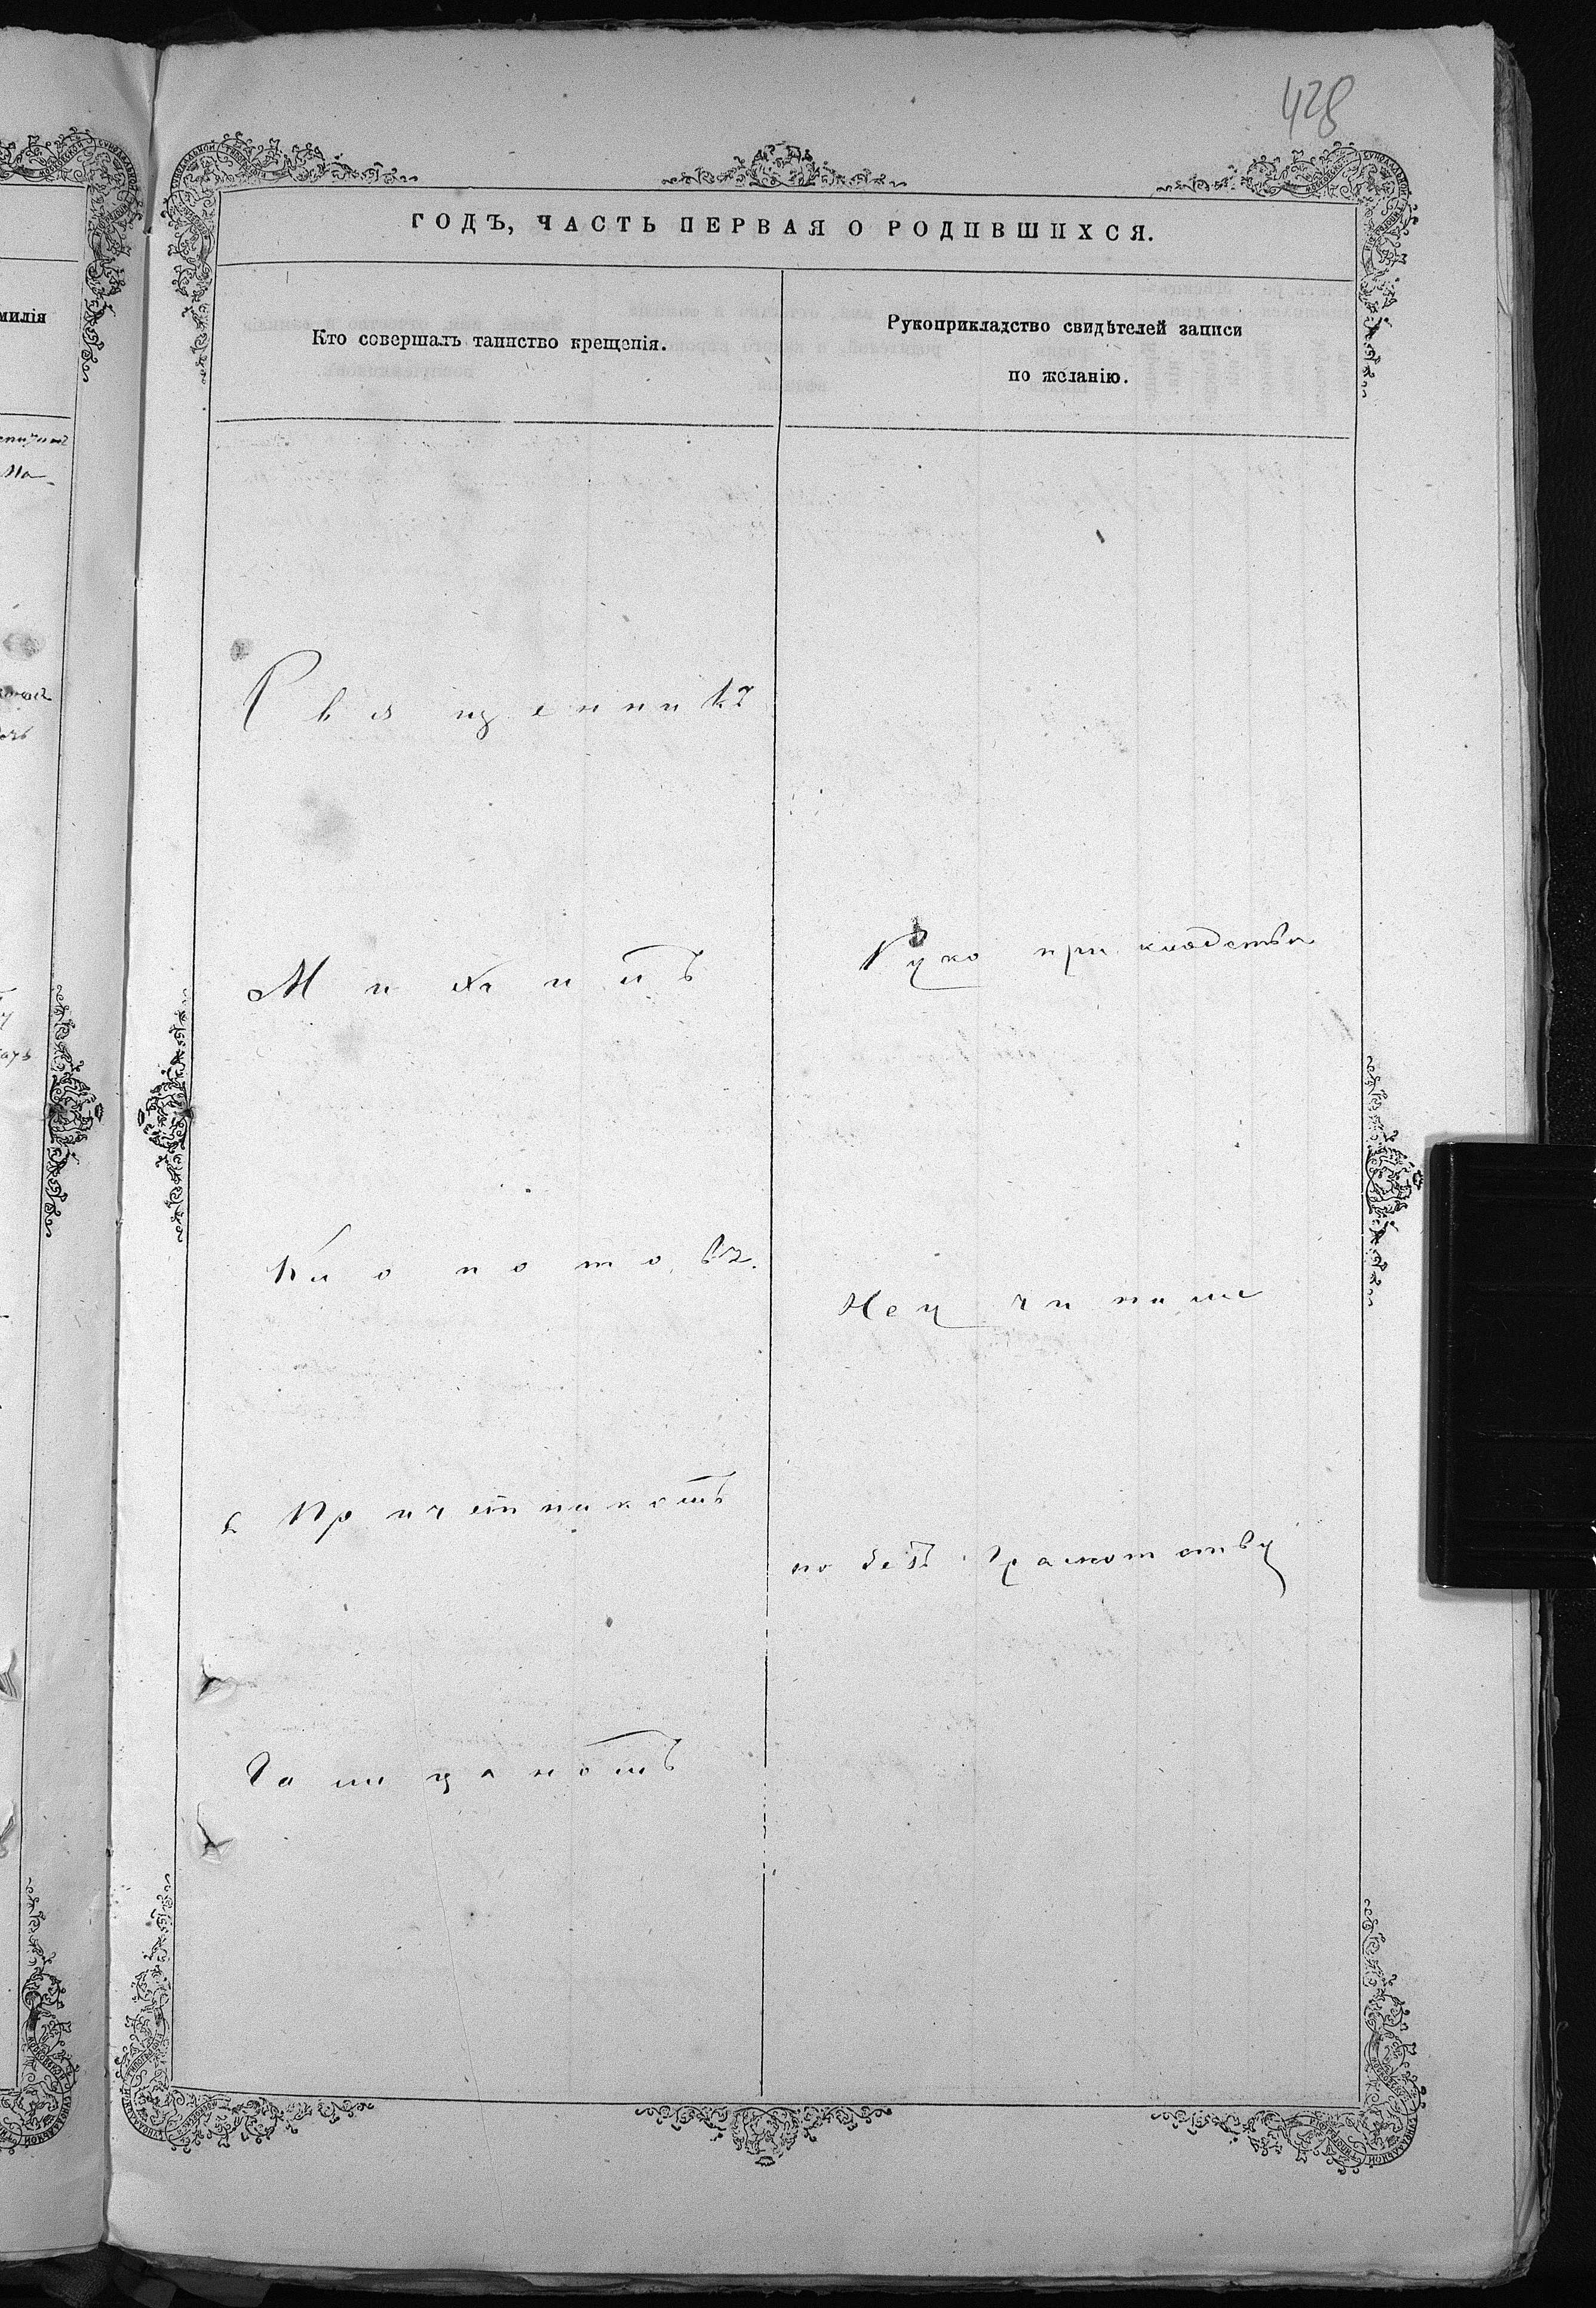 428
ГОДЪ, ЧАСТЬ ПЕРВАЯ О РОДИВШИХСЯ.
милія
Кто совершалъ таинство крещенія.
Рукоприкладство свидѣтелей записи
по желанію.
Священникъ
Михаилъ
Рукоприкладства
Клопотовъ.
неучинили
съ Причетникомъ
по безграмотству